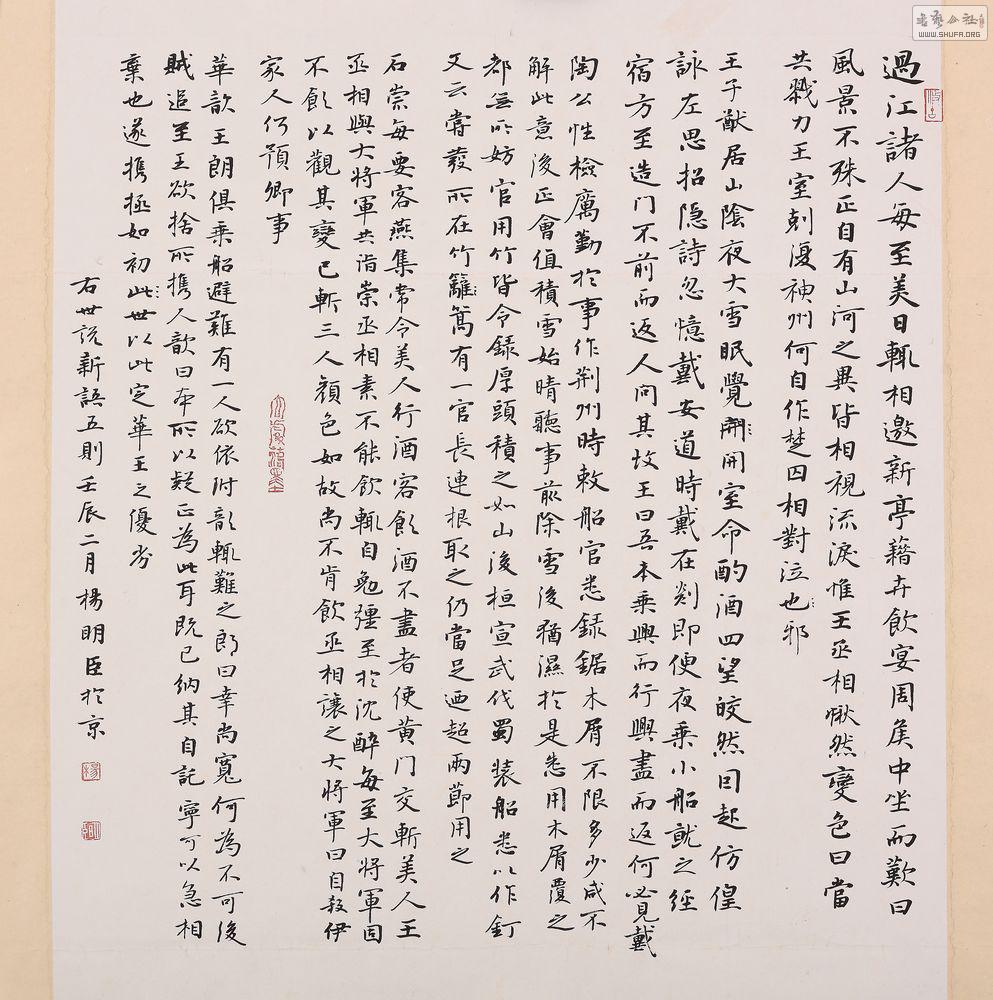 過江諸人每至美日輒相邀新亭藉卉飲宴周侯中坐而歎曰
風景不殊正自有山河之異皆相視流淚惟王丞相愀然變色曰當
共戮力王室剋復神州何自作楚囚相對泣也邪
王子猷居山陰夜大雪眠覺開開室命酌酒四望皎然因起仿偟
詠左思招隱詩忽憶戴安道時戴在剡即便夜乘小船就之經
宿方至造門不前而返人問其故王曰吾本乘興而行興盡而返何必見戴
陶公性檢厲勤於事作荆州時敕船官悉録鋸木屑不限多少咸不
解此意後正會值積雪始晴聽事前除雪後猶濕於是悉用木屑覆之
都無所妨官用竹皆令録厚頭積之如山後桓宣武伐蜀装船悉以作釘
又云嘗發所在竹籬篙有一官長連根取之仍當足迺超兩節用之
石崇每要客燕集常令美人行酒客飲酒不盡者使黄門交斬美人王
丞相與大將軍共詣崇丞相素不能飲輒自勉彊至於沈醉每至大將軍固
不飲以觀其變已斬三人顔色如故尚不肯飲丞相讓之大將軍曰自殺伊
家人何預卿事
華歆王朗俱乘船避難有一人欲依附歆輒難之朗曰幸尚寬何為不可後
賊追至王欲捨所携人歆曰本所以疑正為此耳既已納其自託寧可以急相
棄也遂携拯如初此世以此定華王之優劣
右世説新語五則壬辰二月楊明臣於京
WWW.SHUFA.ORG